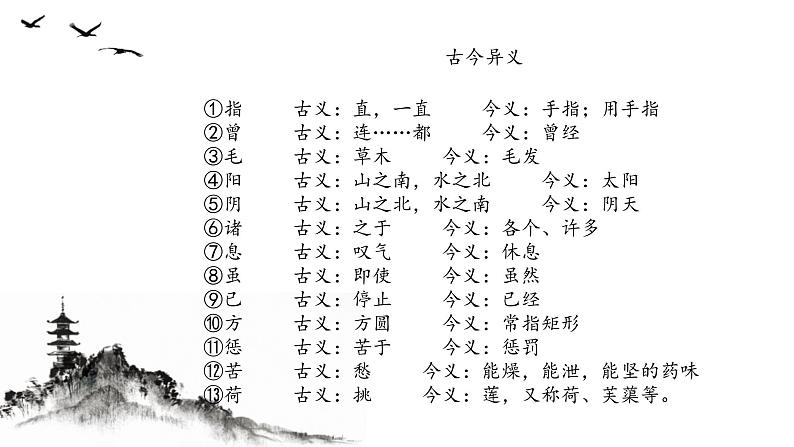 古今异义
①指 古义：直，一直 今义：手指；用手指
②曾 古义：连……都 今义：曾经
③毛 古义：草木 今义：毛发
④阳 古义：山之南，水之北 今义：太阳
⑤阴 古义：山之北，水之南 今义：阴天
⑥诸 古义：之于 今义：各个、许多
⑦息 古义：叹气 今义：休息
⑧虽 古义：即使 今义：虽然
⑨已 古义：停止 今义：已经
⑩方 古义：方圆 今义：常指矩形
⑪惩 古义：苦于 今义：惩罚
⑫苦 古义：愁 今义：能燥，能泄，能坚的药味
⑬荷 古义：挑 今义：莲，又称荷、芙蕖等。